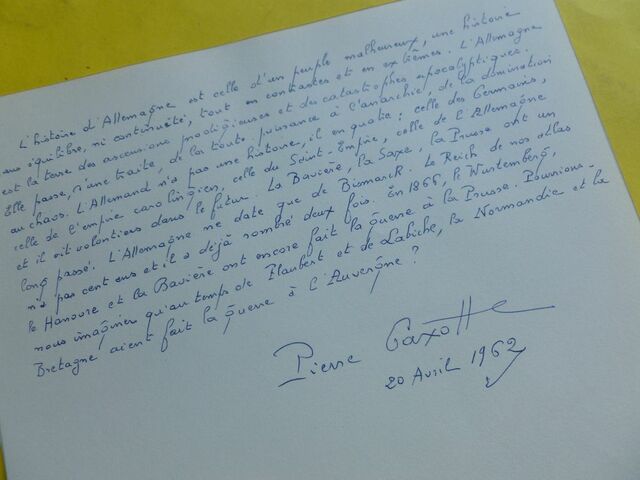 L'histoire d'Allemagne est celle d'un peuple malheureux, une histoire
sans équilibre, ni continuité, tout en contrastes et en extrêmes. L'Allemagne
est la terre des ascensions prodigieuses et des catastrophes apocalyptiques.
Elle passe, d'une traite, de la toute-puissance à l'anarchie, de la domination
au chaos. L'Allemand n'a pas une histoire, il en a quatre : celle des Germains,
celle de l'empire carolingien, celle du Saint-Empire, celle de l'Allemagne
et il vit volontiers dans le futur. La Bavière, la Saxe, la Prusse ont un
long passé. L'Allemagne ne date que de Bismarck. Le Reich de nos atlas
n'a pas cent ans et il a déjà sombré deux fois. En 1866, le Wurtemberg,
le Hanovre et la Bavière ont encore fait la guerre à la Prusse. Pourrions-
nous imaginer qu'au temps de Flaubert et de Labiche, la Normandie et la
Bretagne aient fait la guerre à l'Auvergne ?
Pierre Gaxotte
20 Avril 1962